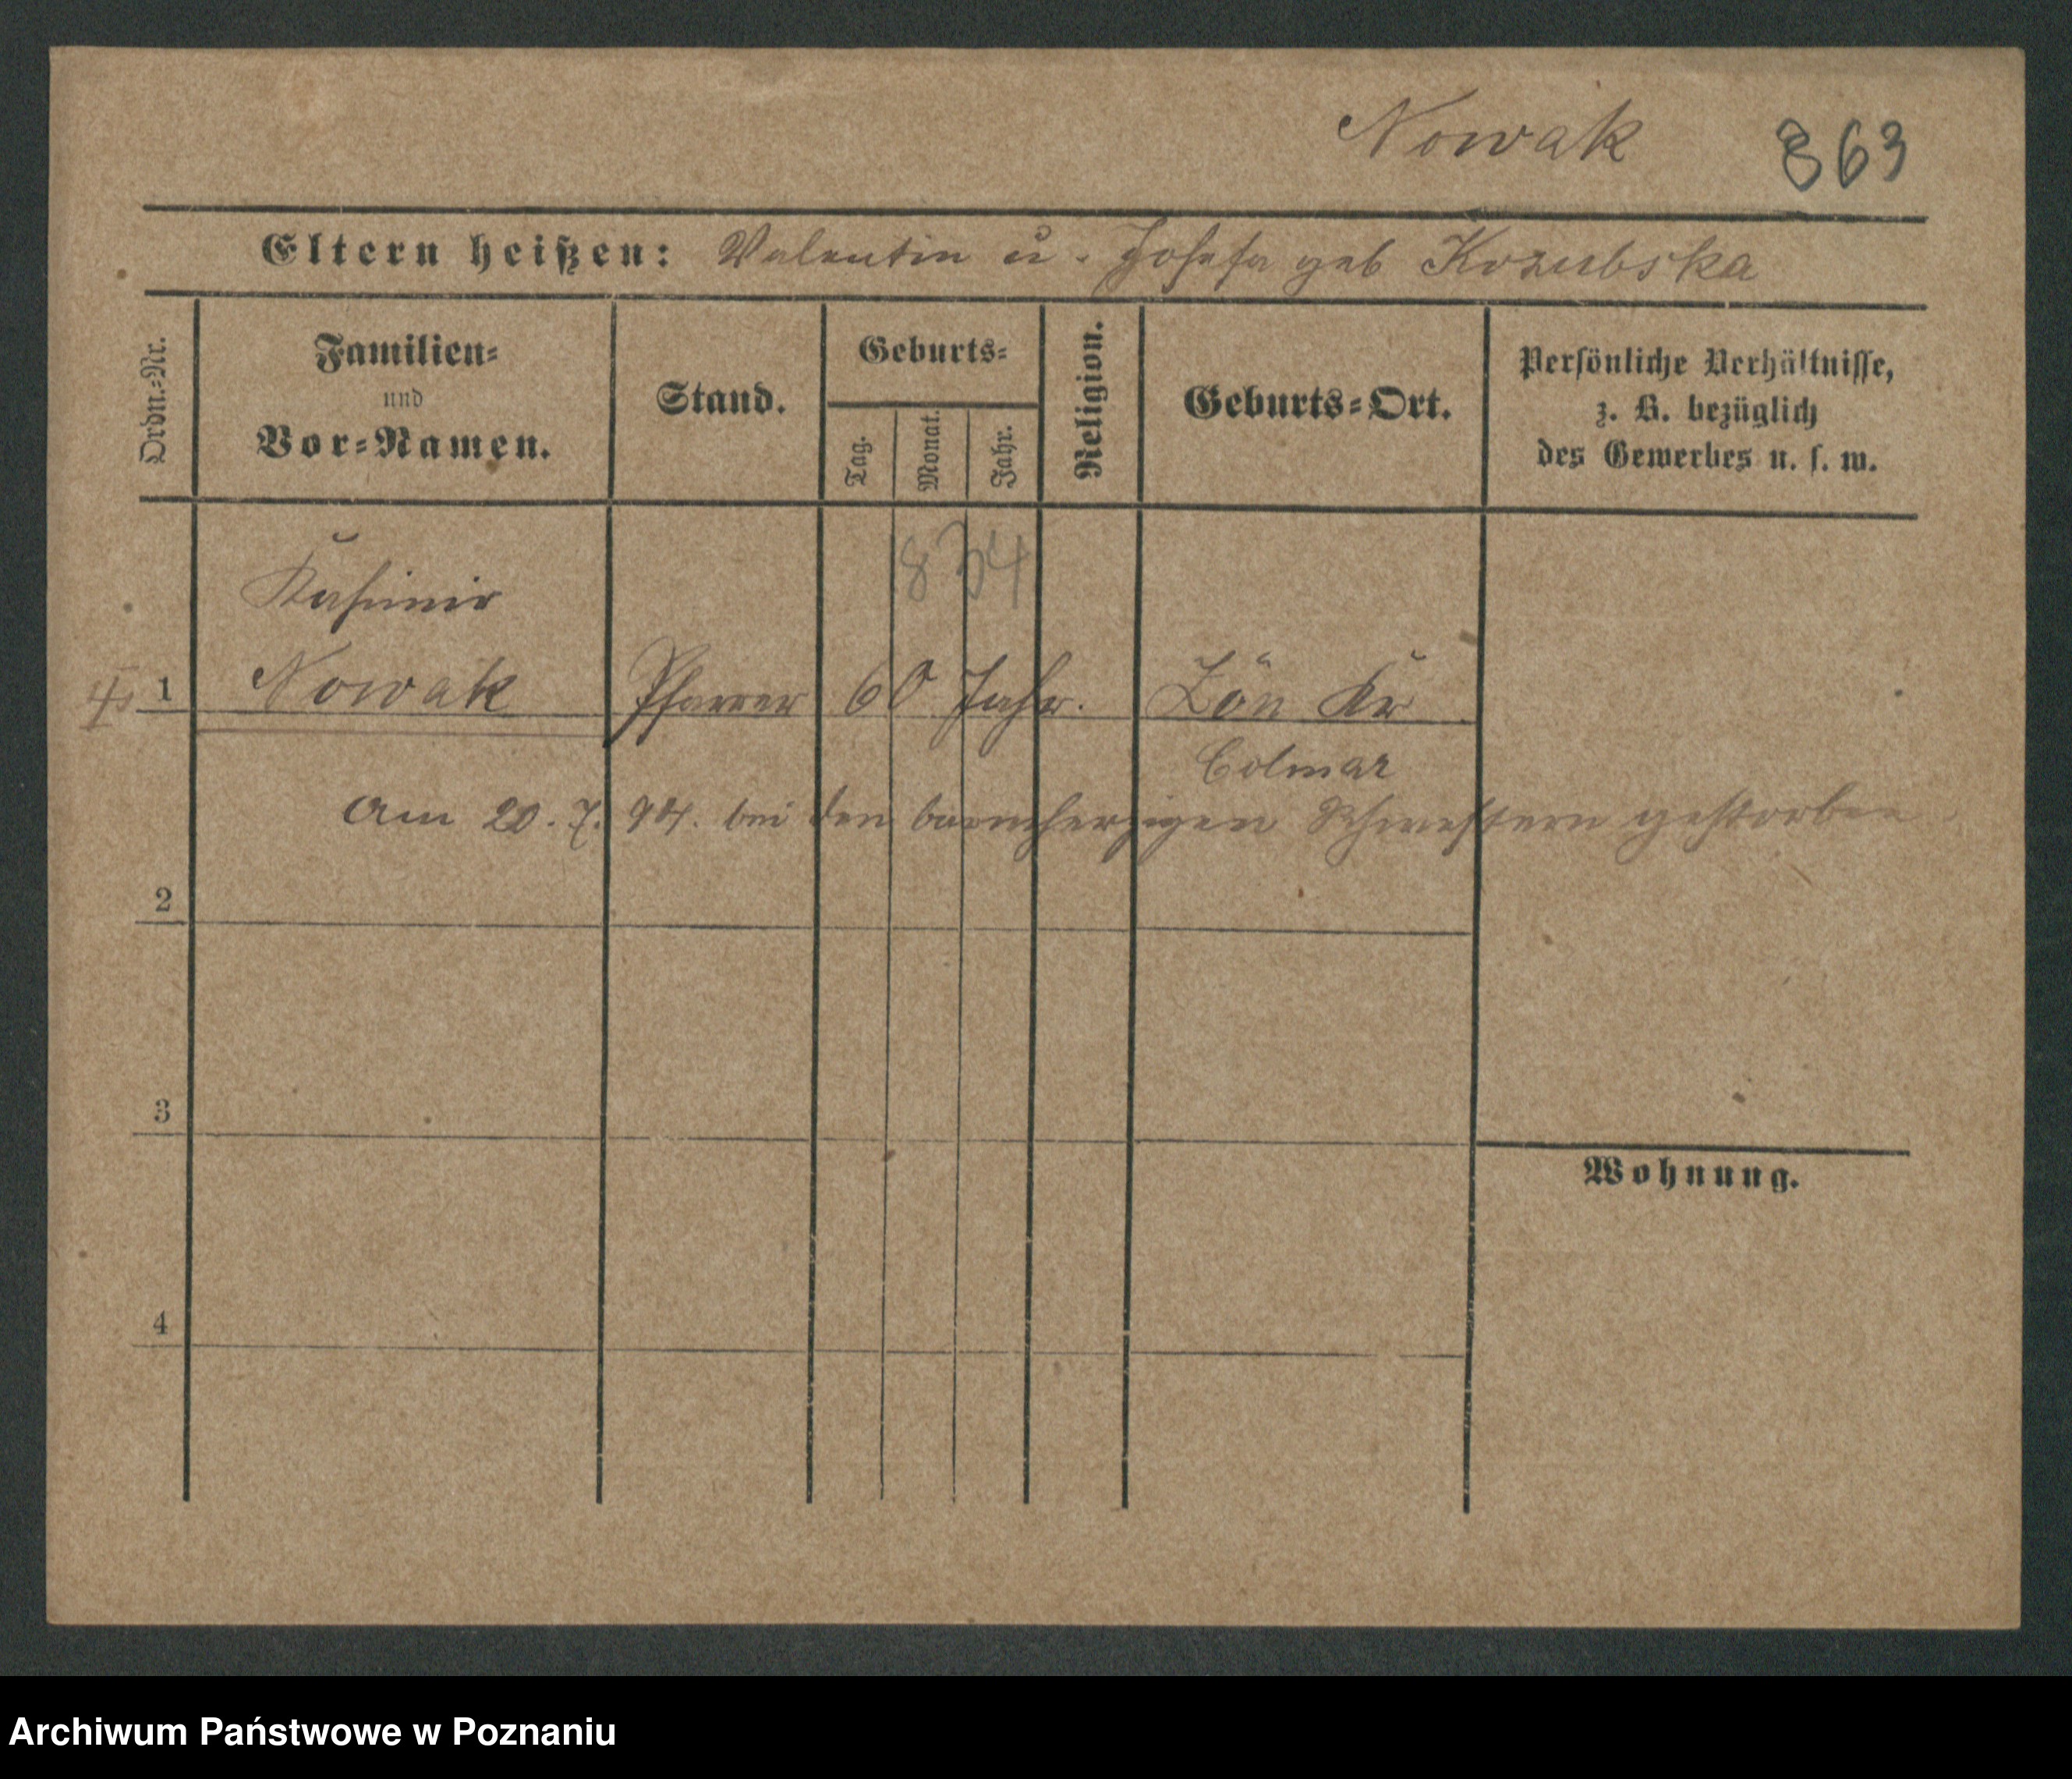 Nowak 863
Eltern heißen: Valentin u. Josefa geb Kozubska
Ordn.=Nr.
Familien=
und
Vor=Namen.
Stand.
Geburts=
Tag.
Monat.
Jahr.
Religion.
Geburts=Ort.
Persönliche Verhältnisse,
z. B. bezüglich
des Gewerbes u. s. w.
834
Kasimir
1 Nowak Pfarrer 60 Jahr. Zön Kr
Colmar
Am 20. 7. 94. bei den barmherzigen Schwestern gestorben
2
3
Wohnung.
4
Archiwum Państwowe w Poznaniu